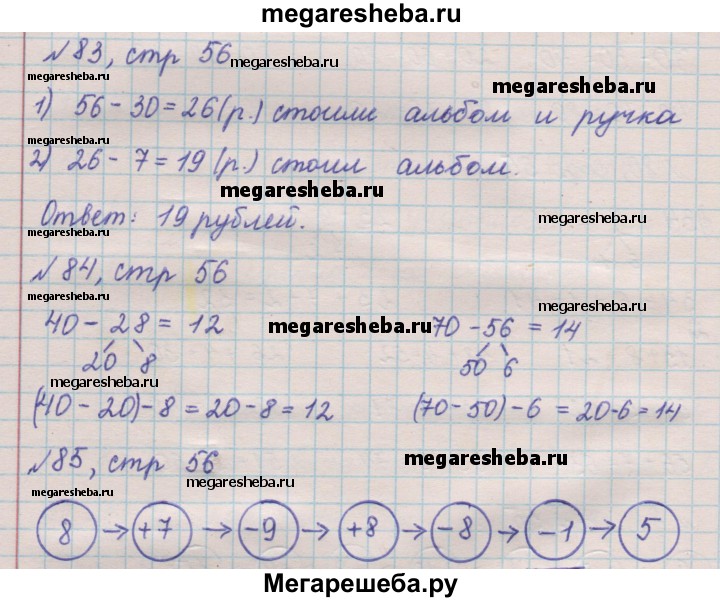 megaresheba.ru
№83, стр 56
megaresheba.ru
megaresheba.ru
megaresheba.ru
1) 56 - 30 = 26 (р.) стоили альбом и ручка
megaresheba.ru
2) 26 - 7 = 19 (р.) стоил альбом.
megaresheba.ru
Ответ: 19 рублей.
megaresheba.ru
megaresheba.ru
№84, стр 56
megaresheba.ru
megaresheba.ru
40 - 28 = 12 70 - 56 = 14
megaresheba.ru
20 8 50 6
megaresheba.ru
(40 - 20) - 8 = 20 - 8 = 12 (70 - 50) - 6 = 20 - 6 = 14
№85, стр 56
megaresheba.ru
megaresheba.ru
8 → +7 → -9 → +8 → -8 → -1 → 5
megaresheba.ru
Мегарешеба.ру